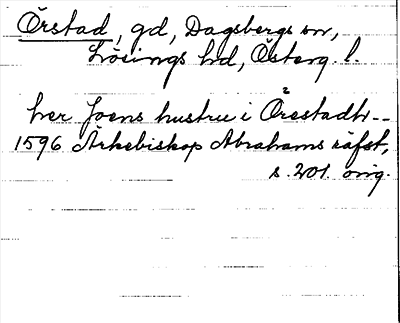 Örstad, gd, Dagsbergs sn,
Lösings hd, Österg. l.
her Joens hustru i Örestadh--
1596 Ärkebiskop Abrahams räfst,
s. 201. orig.